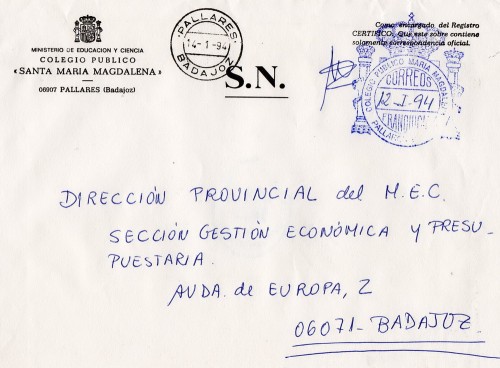 MINISTERIO DE EDUCACION Y CIENCIA
COLEGIO PUBLICO
«SANTA MARIA MAGDALENA»
06907 PALLARES (Badajoz)
PALLARES
14-1-94
BADAJOZ
S.N.
Como encargado del Registro
CERTIFICO: Que este sobre contiene
solamente correspondencia oficial.
COLEGIO PUBLICO MARIA MAGDALENA
CORREOS
12-I-94
FRANQUICIA
PALLARES
DIRECCIÓN PROVINCIAL del M.E.C.
SECCIÓN GESTIÓN ECONÓMICA y PRESU-
PUESTARIA.
AVDA. de EUROPA, 2
06071-BADAJOZ